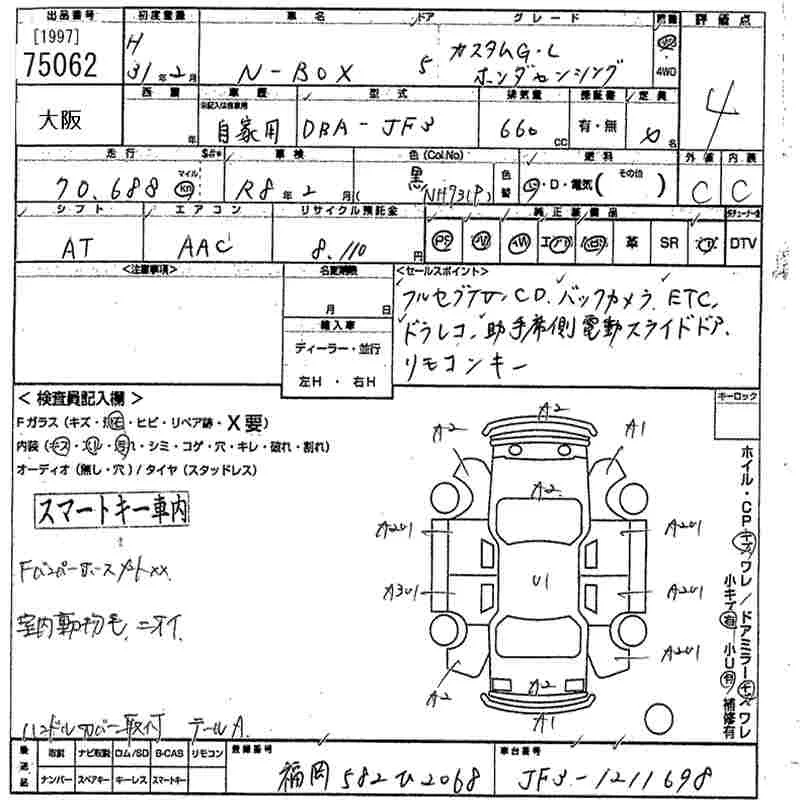 出品番号 初度登録 車名 ドア グレード 評価点
[1997] 75062 H 31年2月 N-BOX 5 カスタムG・L ホンダセンシング 4WD 4
西暦 車歴 型式 排気量 保証書 定員
大阪 年 自家用 DBA-JF3 660 cc 有・無 名
走行 車検 色(Col.No) 燃料 外装 内装
70,688 マイル Km R8年2月 黒 NH731P 色替 ・D・電気( その他 ) C C
シフト エアコン リサイクル預託金 純正装備品
AT AAC 8,110円 PS 革 SR DTV
<注意事項> 名変期限 <セールスポイント>
月 日 フルセグTV、CD、バックカメラ、ETC、
輸入車 ドラレコ、助手席側電動スライドドア、
ディーラー・並行 リモコンキー
左H ・ 右H
<検査員記入欄> キーロック
Fガラス(キズ・ ・ヒビ・リペア跡・X要)
内装(キズ・ ・汚れ・シミ・コゲ・穴・キレ・破れ・割れ)
オーディオ(無し・穴)/タイヤ(スタッドレス)
スマートキー車内
室内動物毛、ニオイ
ハンドルカバー取付 テールA
A2
A2 A1
A2
A2U1 A2U1
U1
A3U1 A2U1
A2U1
A2 A2
A1
ホイル・CP キズ ワレ/ドアミラー キズ ワレ
小キズ 有 小U 有 補修有
後送品 取説 ナビ取説 ロム/SD B-CAS リモコン 登録番号 車台番号
ナンバー スペアキー キーレス スマートキー 福岡 582 ひ 2068 JF3-1211698